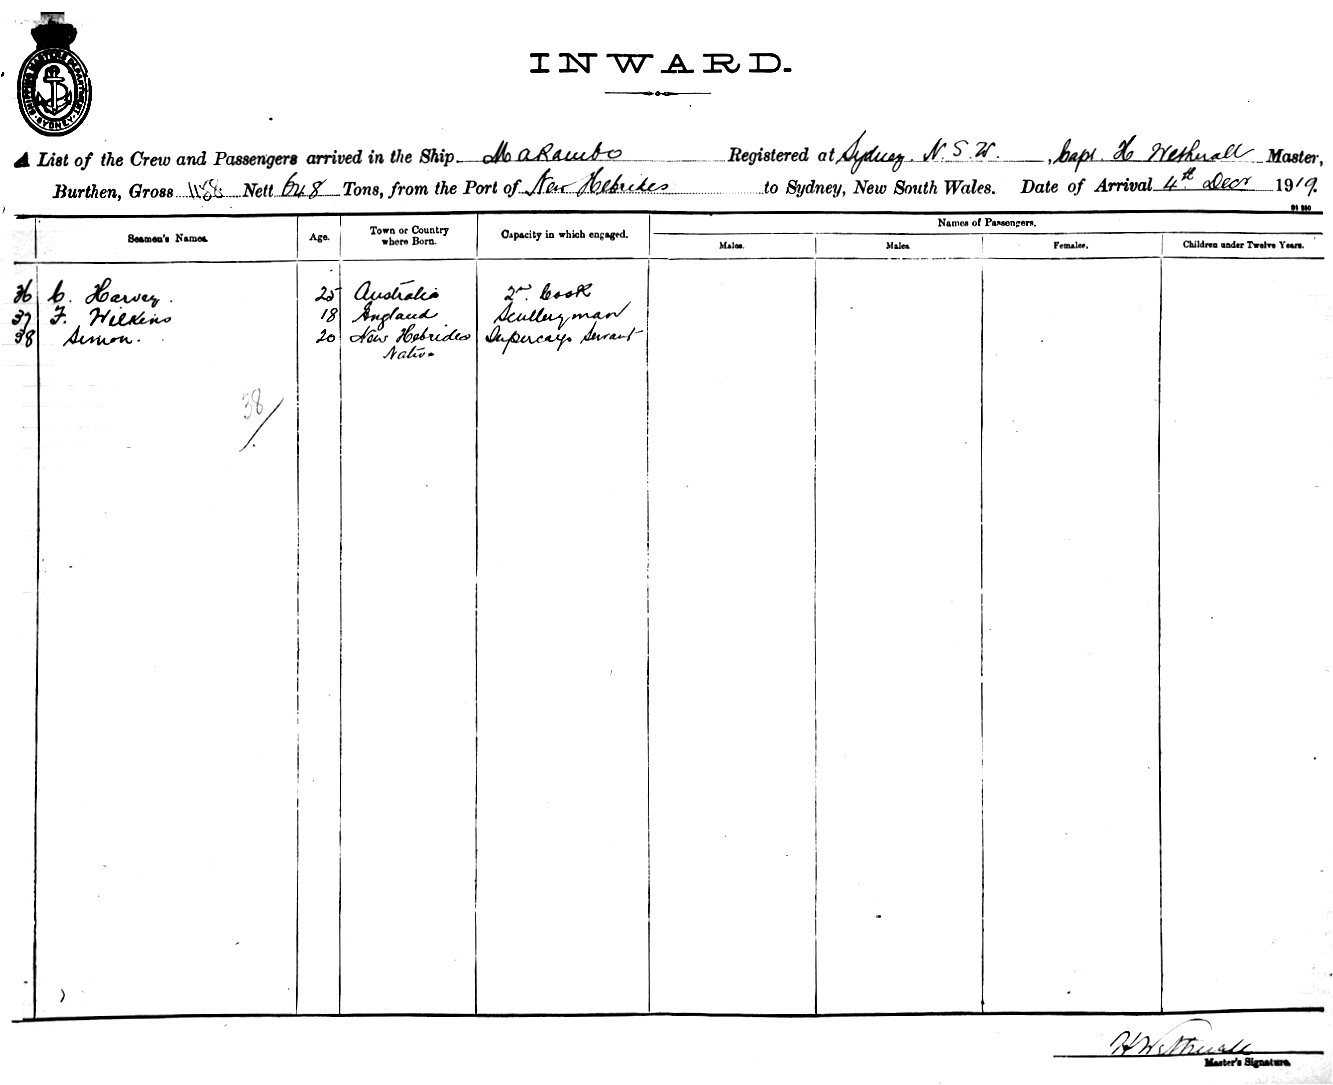 SHIPPING MASTER'S DEPARTMENT SYDNEY
INWARD.
A List of the Crew and Passengers arrived in the Ship Makambo Registered at Sydney N. S. W. , Capt. H Wetherall Master,
Burthen, Gross 1158 Nett 648 Tons, from the Port of New Hebrides to Sydney, New South Wales. Date of Arrival 4th Decr 1919.
Seamen's Names. Age. Town or Country where Born. Capacity in which engaged. Names of Passengers.
Males. Males. Females. Children under Twelve Years.
36 C. Harvey. 25 Australia 2nd Cook
37 F. Wilkins 18 England Sculleryman
38 Simon. 20 New Hebrides Supercargo Servant
Native
38
H Wetherall
Master's Signature.